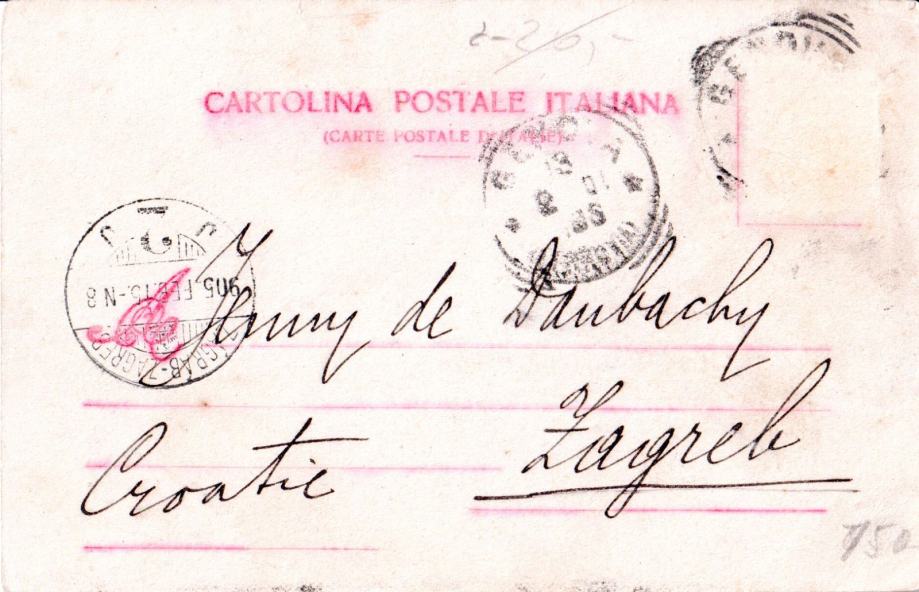 CARTOLINA POSTALE ITALIANA
(CARTE POSTALE D'ITALIE)
GENOVA
GENOVA
905 FEB. 15-N 8
ZÁGRÁB-ZAGREB
A
de Daubachy
Zagreb
Croatie
750